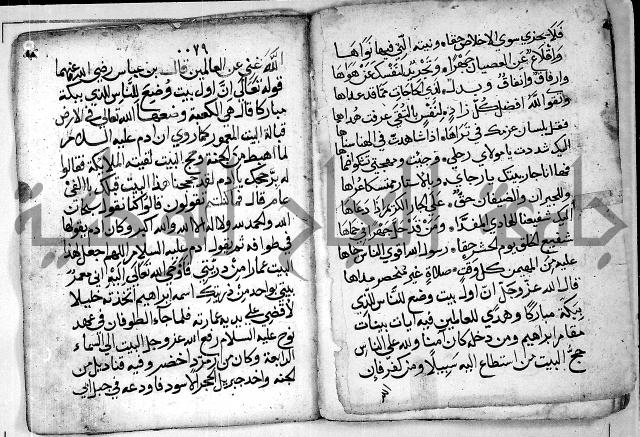 فلا تجزي سوى الاخلاص حقا ونيته التي فيها نواها
واقلاع عن العصيان جهرا وتجريد لنفسك عن هواها
وارفاق وانفاق وبذل لذي الحاجات عما قد عداها
وتقوى الله افضل كل زاد لنفس بالتقى عرفت هداها
فقل بلسان عزمك في تراها اذا شاهدت في المعنى سناها
اليك شددت يا مولاي رحلي وجئت ومهجتي تشكو ظماها
فها انا جار بيتك يا رجائي وبالاستار ممتسكا عراها
وللجيران والضيفان حق على الجار الكريم اذا رعاها
اليك شفيعنا الهادي المفدا ومن قد حل جهرا في حماها
شفيع الخلق يوم الحشر حقا رسول الله اقوى الناس جاها
عليه من المهيمن كل وقت صلاة غير منحصر مداها
قال الله عز وجل ان اول بيت وضع للناس للذي
ببكة مباركا وهدى للعالمين فيه ايات بينات
مقام ابراهيم ومن دخله كان آمنا ولله على الناس
حج البيت من استطاع اليه سبيلا ومن كفر فان
الله
٧٩
الله غني عن العالمين قال بن عباس رضي الله عنهما
قوله تعالى ان اول بيت وضع للناس للذي ببكة
مباركا قال هي الكعبة وضعها الله تعالى في الارض
قبالة البيت المعمور مما روي ان ادم عليه السلام
لما اهبط من الجنة وحج البيت لقيته الملائكة فقالوا
له بر حجك يا ادم لقد حججنا هذا البيت قبلك بالفي
عام قال فما كنتم تقولون قالوا كنا نقول سبحان
الله والحمد لله ولا اله الا الله والله اكبر وكان ادم يقولها
في طوافه ثم يقول ادم عليه السلام اللهم اجعل لهذا
البيت عمارا من ذريتي فاوحى الله تعالى اليه اني معمر
بيتي بواحد من ذريتك اسمه ابراهيم اتخذته خليلا
لاقضي على يديه عمارته فلما جاء الطوفان في عهد
نوح عليه السلام رفع الله عز وجل البيت الى السماء
الرابعة وكان من زمرد اخضر وفيه قناديل من
الجنة واخذ جبريل الحجر الاسود فاودعه في جبل ابي
جامعة النجاح الوطنية